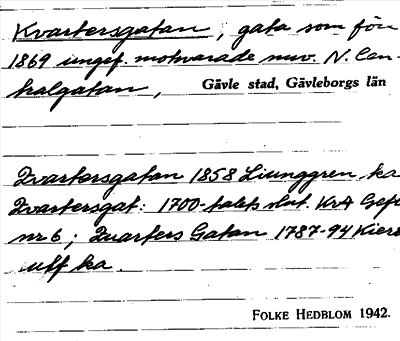 Kvartersgatan, gata som för
1869 ungef. motsvarade nuv. N. Cen-
tralgatan,
Gävle stad, Gävleborgs län
Qvartersgatan 1858 Ljunggren ka
Qvartersgat: 1700-talets slut. KrA Gefle
nr 6; Quarters Gatan 1787-94 Kiers
uff ka.
FOLKE HEDBLOM 1942.